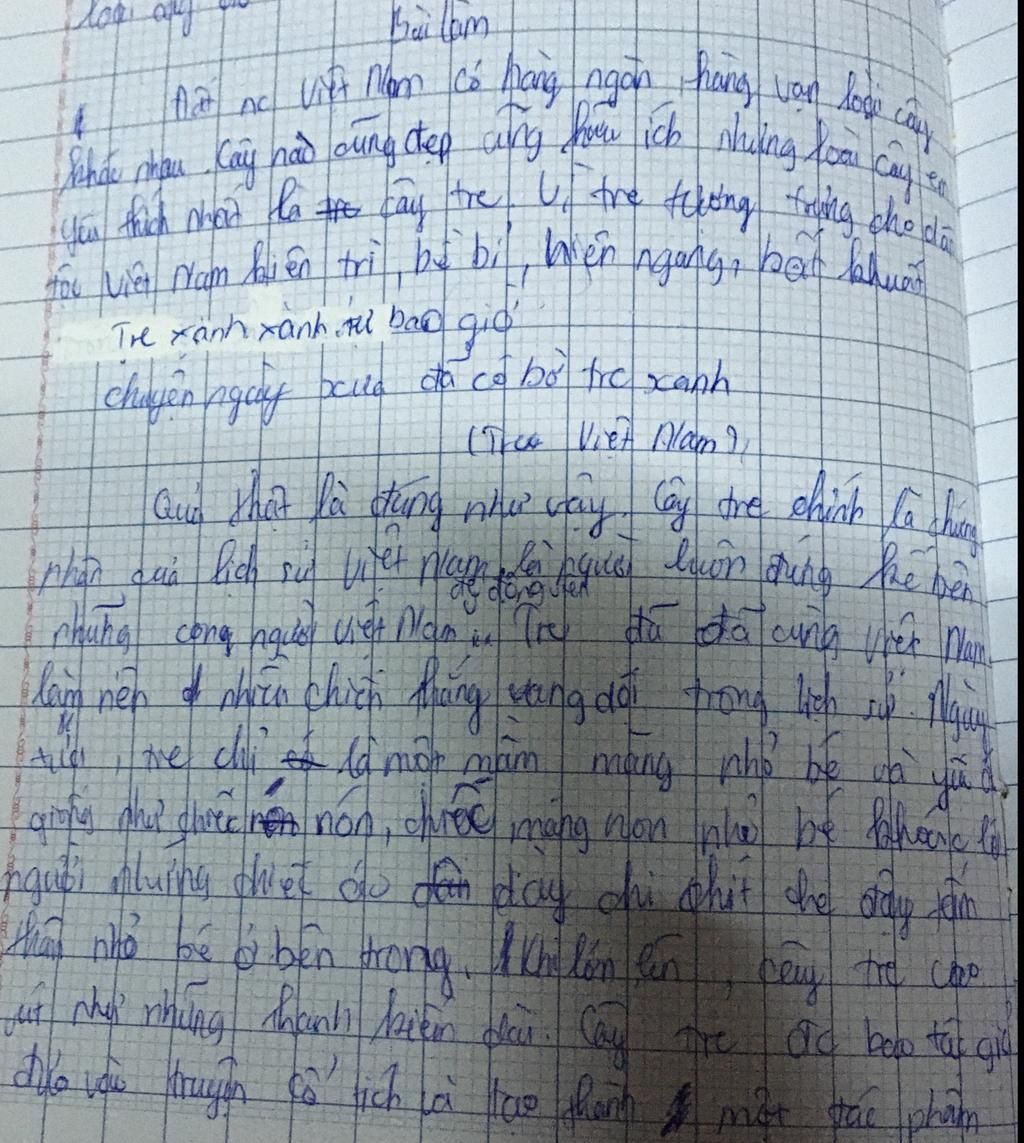 loài cây
Bài làm
Đất nc Việt Nam có hàng ngàn hàng vạn loài cây
khác nhau. Cây nào cũng đẹp cũng hữu ích nhưng loài cây em
yêu thích nhất là tre cây tre. Vì tre tượng trưng cho dân
tộc Việt Nam kiên trì, bề bỉ, hiên ngang, bất khuất
Tre xanh xanh tự bao giờ
chuyện ngày xưa đã có bờ tre xanh
(Tre Việt Nam)
Quả thật là đúng như vậy. Cây tre chính là chứng
nhận quả lịch sử Việt Nam, là người luôn đứng kề bên
những cong người Việt Nam để động viên. Tre đã đã cùng Việt Nam
làm nên nhiều chiến thắng vang dội trong lịch sử. Ngày
, tre chỉ là một mầm măng nhỏ bé và yếu ớt
giống như chiếc nón, chiếc măng non nhỏ bé khoác lên
người những chiếc áo dày chi chít che đậy tấm
thân nhỏ bé ở bên trong. Khi lớn lên, cây tre cao
vút như những thanh kiếm dài. Cây tre đc bao tác giả
đưa vào truyện cổ tích và tạo thành một tác phẩm